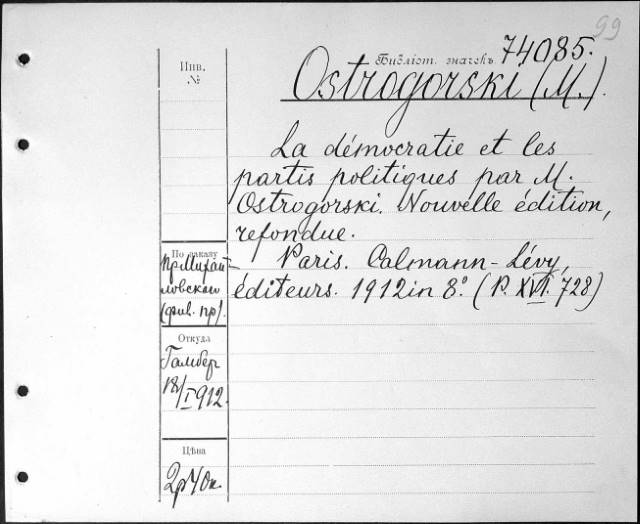 99
Библіот. значекъ 74085.
Инв.
№
Ostrogorski (M.).
La démocratie et les
partis politiques par M.
Ostrogorski. Nouvelle édition,
refondue.
Paris. Calmann-Lévy,
éditeurs. 1912 in 8º. (P. XVI. 728)
По заказу
пр. Михай-
ловскаго
Откуда
Гамбер
18/I 912.
Цѣна
2р 40к.